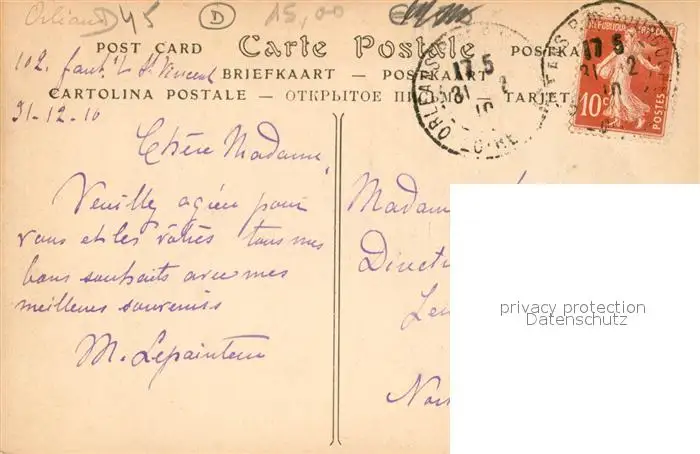 Orléans D45 D 15,00
POST CARD Carte Postale POSTKA
BRIEFKAART — POSTKAART
CARTOLINA POSTALE — ОТКРЫТОЕ ПИСЬМО — TARJET
17 5
31 12
10
ORLEANS
17 5
31 2
10
10c POSTES
102, faubg St Vincent
31-12-10
Chère Madame,
Veuillez agréer pour
vous et les vôtres tous mes
bons souhaits avec mes
meilleurs souvenirs
M. Lepainteur
Madame
Direct
privacy protection
Datenschutz